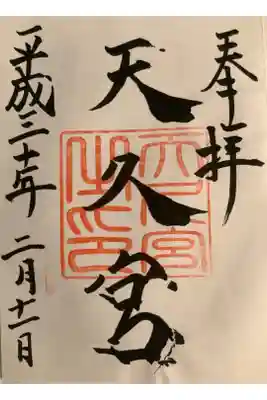 奉拝
天久宮
平成三十年 二月十一日